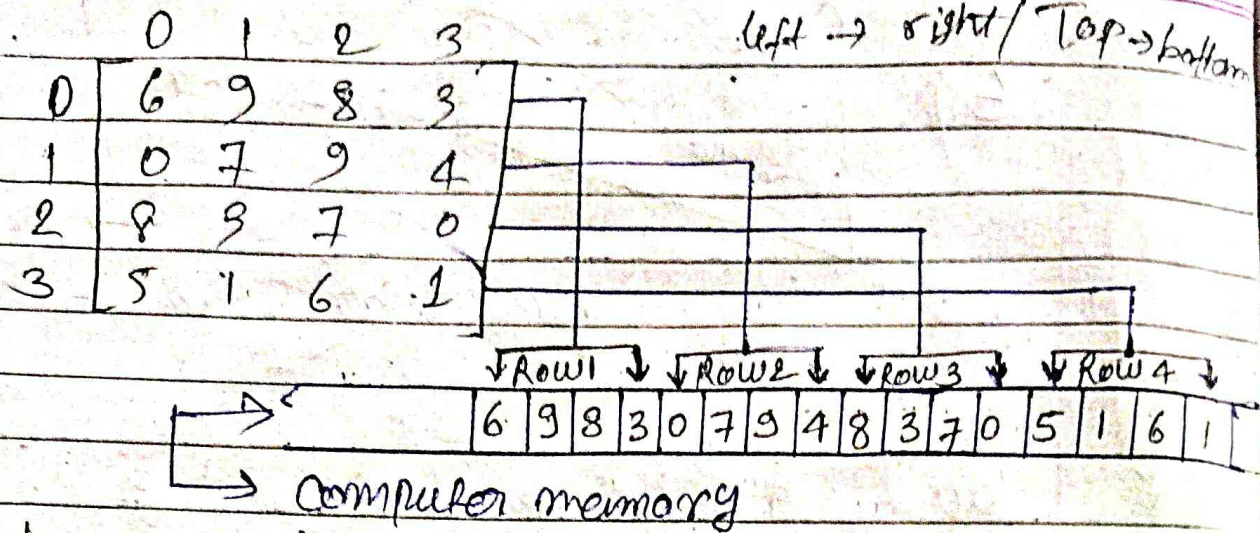 left → right / Top → bottom
0 1 2 3
0 6 9 8 3
1 0 7 9 4
2 8 3 7 0
3 5 1 6 1
ROW1 ROW2 ROW3 ROW4
6 9 8 3 0 7 9 4 8 3 7 0 5 1 6 1
computer memory